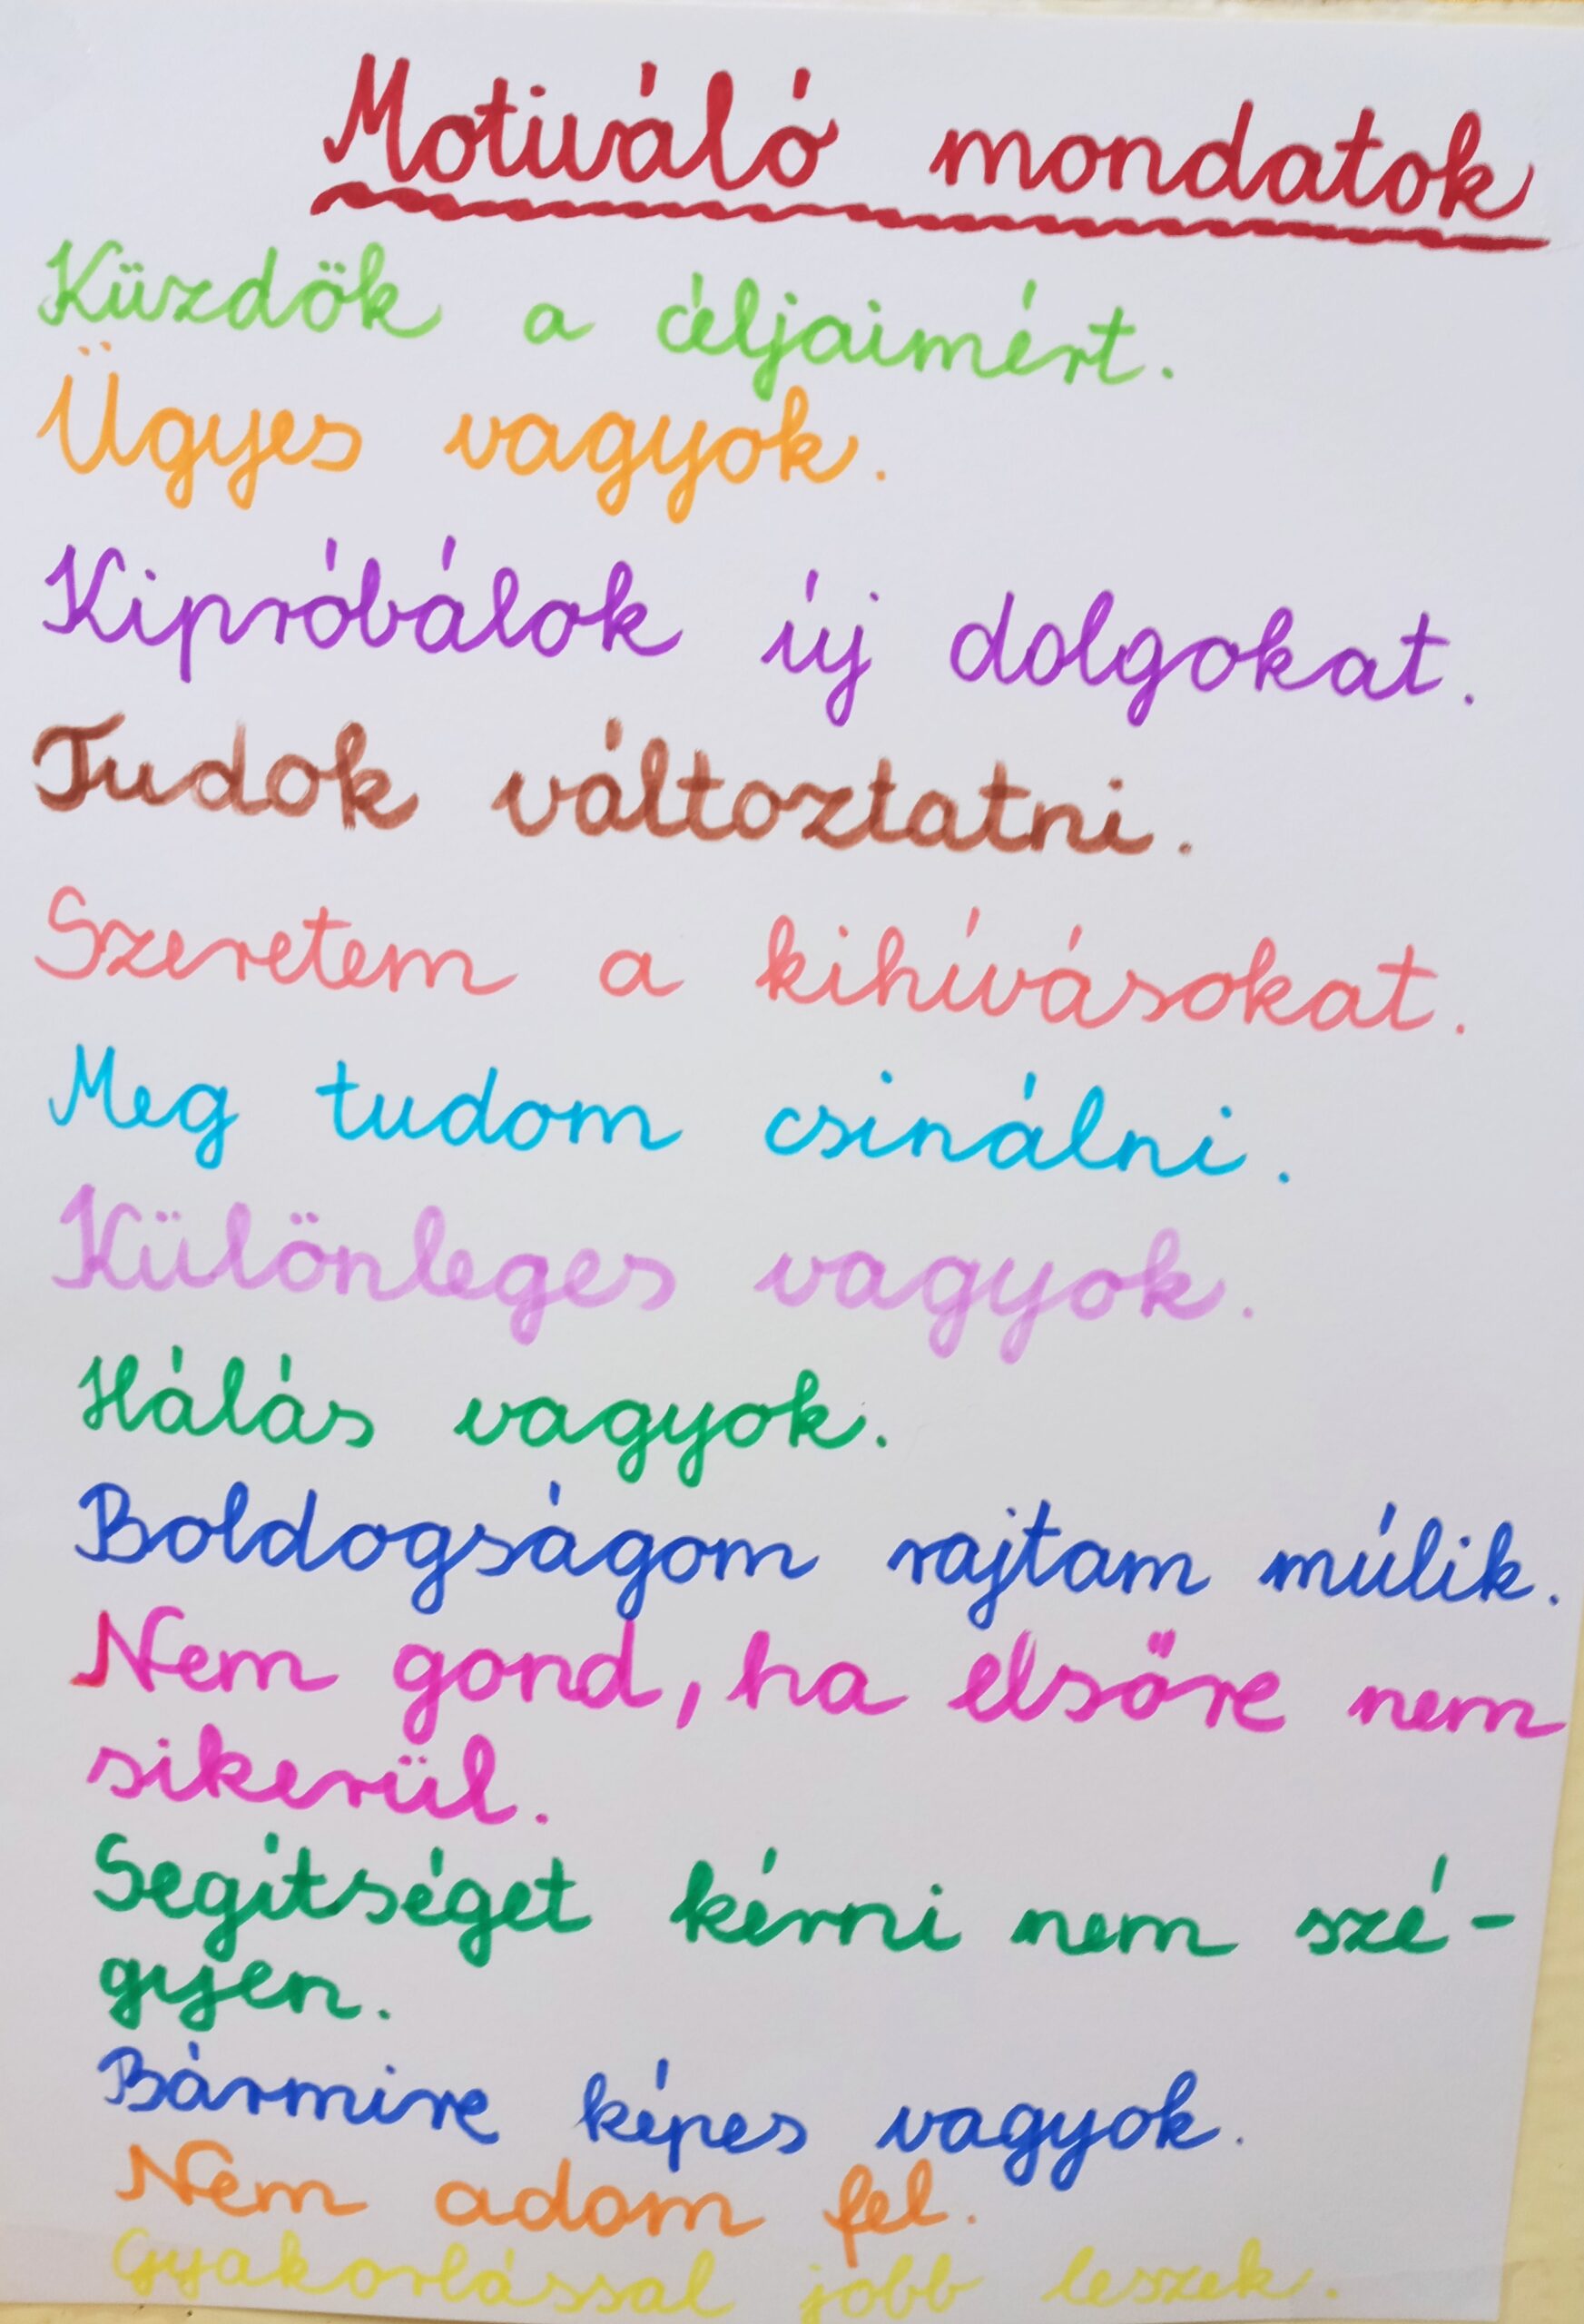 Motiváló mondatok
Küzdök a céljaimért.
Ügyes vagyok.
Kipróbálok új dolgokat.
Tudok változtatni.
Szeretem a kihívásokat.
Meg tudom csinálni.
Különleges vagyok.
Hálás vagyok.
Boldogságom rajtam múlik.
Nem gond, ha elsőre nem
sikerül.
Segítséget kérni nem szé-
gyen.
Bármire képes vagyok.
Nem adom fel.
Gyakorlással jobb leszek.